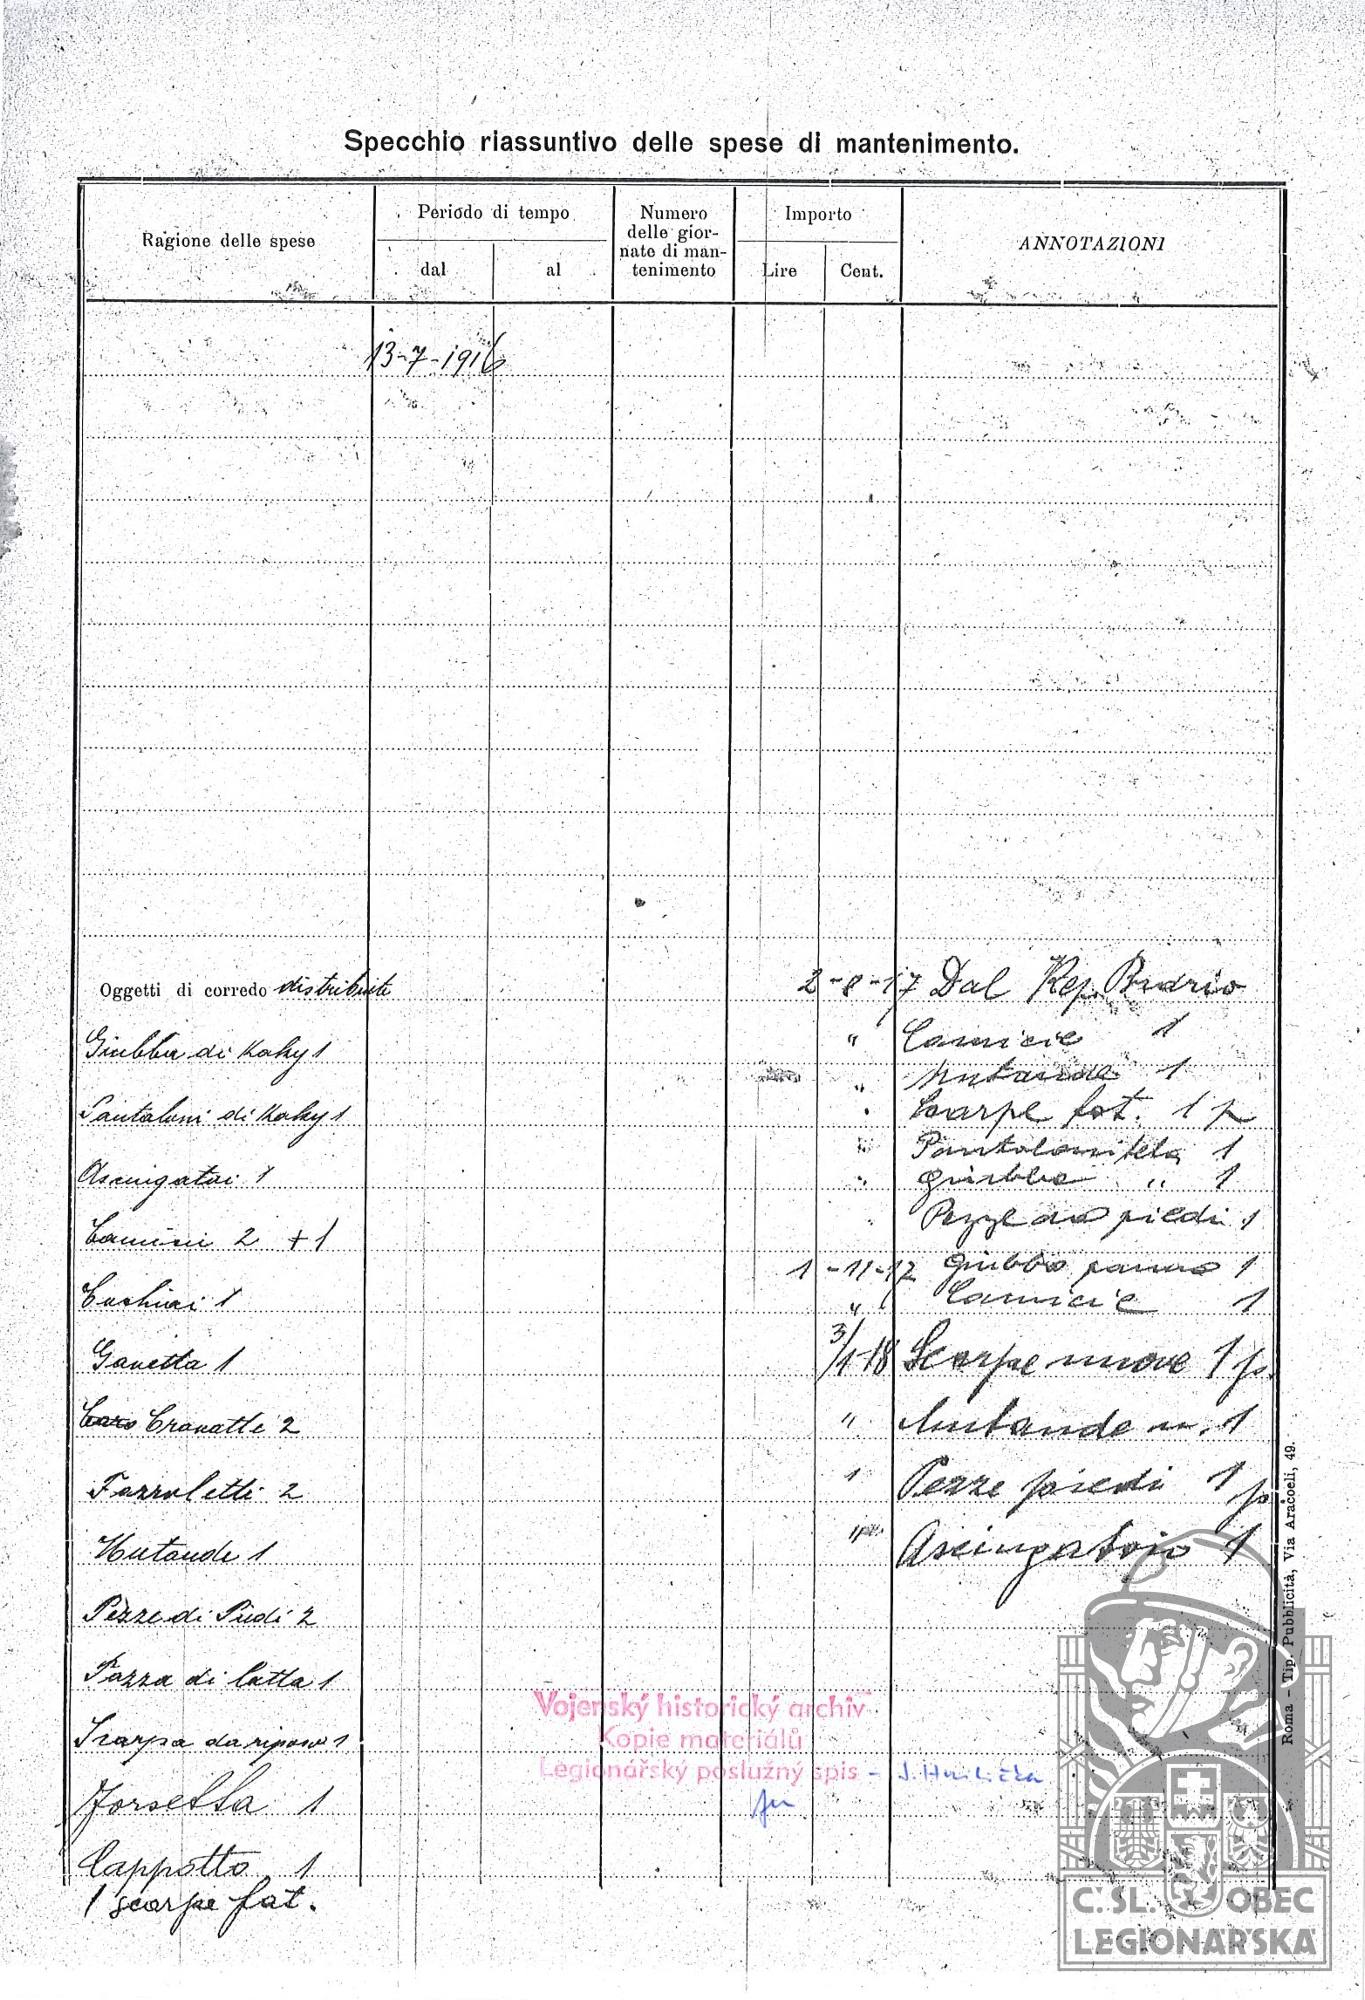 Specchio riassuntivo delle spese di mantenimento.
Ragione delle spese
Periodo di tempo
dal
al
Numero
delle gior-
nate di man-
tenimento
Importo
Lire
Cent.
ANNOTAZIONI
13-7-1916
Oggetti di corredo distribuite
2-8-17 Dal Rep. Budrio
Giubba di Kaky 1
" Camicie 1
" Mutande 1
Pantaloni di Kaky 1
Scarpe fat. 1 p
Pantaloni tela 1
Asciugatoi 1
" giubba " 1
Pezze da piedi 1
Camicie 2 +1
1-11-17 giubba panno 1
Cuchiai 1
" Camicie 1
Gavetta 1
3/1-18 Scarpe nuove 1 p.
Cravatte 2
" Mutande n. 1
Fazzoletti 2
Pezze piedi 1 p
Mutande 1
" Asciugatoio 1
Pezze di Piedi 2
Tazza di latta 1
Scarpa da riposo 1
Forsetta 1
Cappotto 1
1 scarpe fat.
Vojenský historický archiv
Kopie materiálů
Legionářský poslužný spis - J. Hrilička
Roma - Tip. Pubblicità, Via Aracoeli, 49.
Č. SL. OBEC
LEGIONÁŘSKÁ